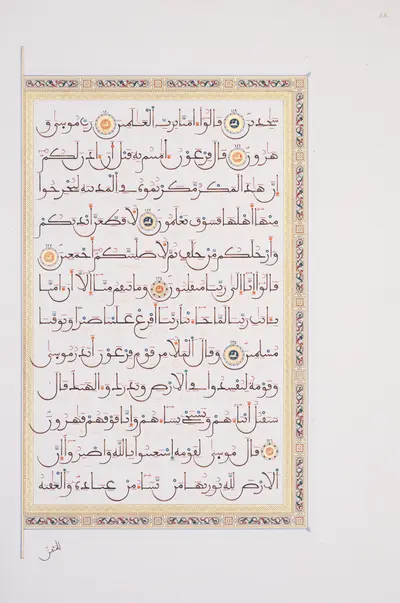 سجدين قالوا ءامنا برب العلمين رب موسى و
هرون قال فرعون ءامنتم به قبل أن ءاذن لكم
إن هذا لمكر مكرتموه في المدينة لتخرجوا
منها أهلها فسوف تعلمون لأقطعن أيديكم
وأرجلكم من خلف ثم لأصلبنكم أجمعين
قالوا إنا إلى ربنا منقلبون وما تنقم منا إلا أن ءامنا
بايت ربنا لما جاءتنا ربنا أفرغ علينا صبرا وتوفنا
مسلمين وقال الملأ من قوم فرعون أتذر موسى
وقومه ليفسدوا في الأرض ويذرك وءالهتك قال
سنقتل أبناءهم ونستحي نساءهم وإنا فوقهم قهرون
قال موسى لقومه استعينوا بالله واصبروا إن
الأرض لله يورثها من يشاء من عباده والعقبة
للمتقين